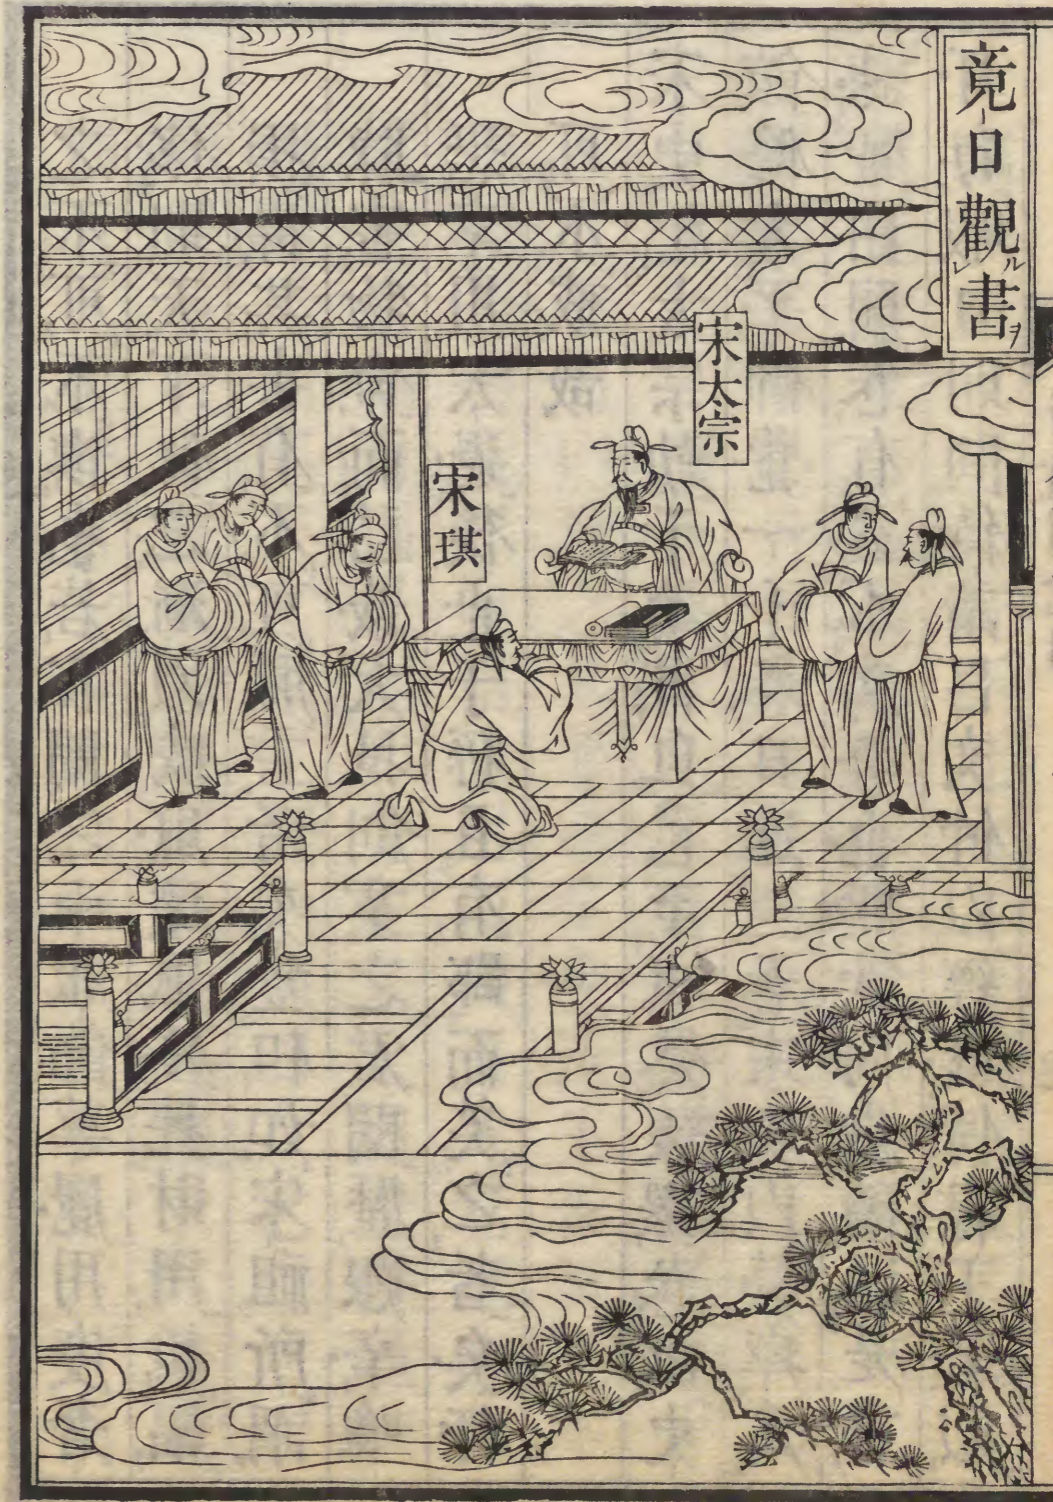 竟日觀ル書ヲ
宋太宗
宋琪